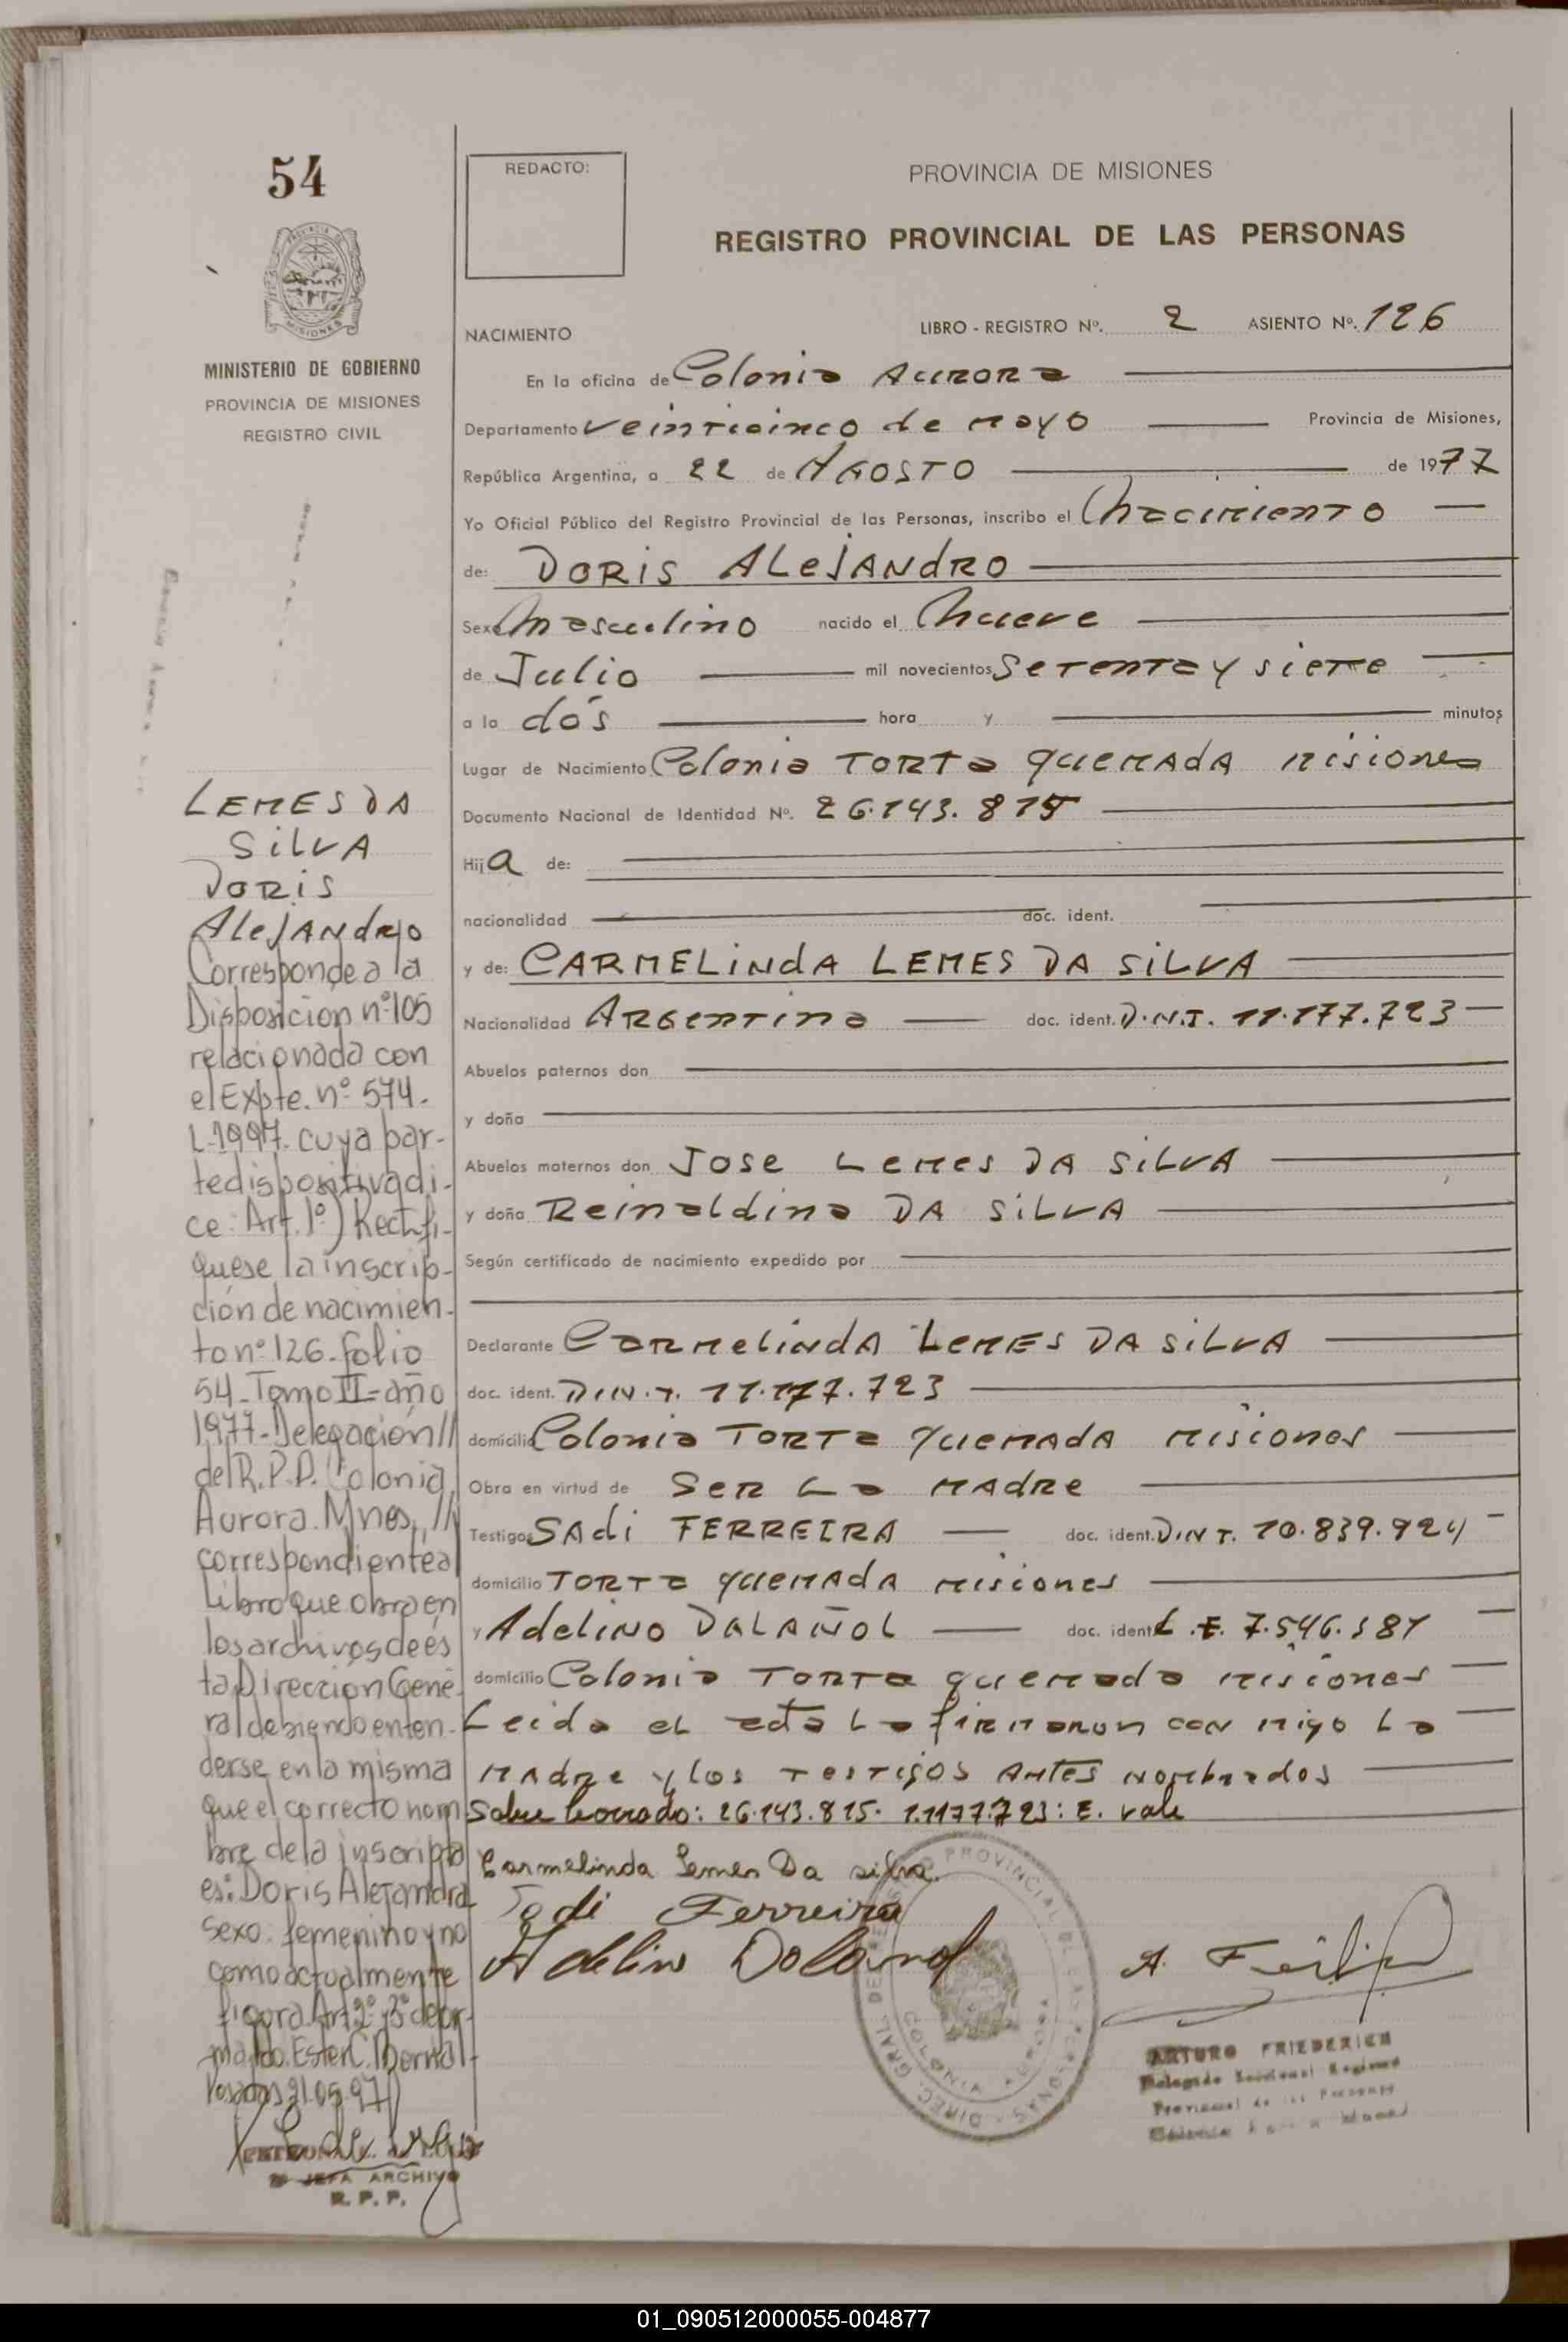 54
MINISTERIO DE GOBIERNO
PROVINCIA DE MISIONES
REGISTRO CIVIL
LEMES DA
SILVA
DORIS
ALEJANDRO
Corresponde a la
Disposicion nº 105
relacionada con
el Expte. nº 574-
L-1997- cuya par-
te dispositiva di-
ce: Art. 1º) Rectifi-
quese la inscrip-
ción de nacimien-
to nº 126- folio
54- Tomo II- año
1977- Delegación //
del R.P.P. Colonia
Aurora. Mnes, //
correspondiente al
Libro que obra en
los archivos de és
ta Dirección Gene-
ral debiendo enten-
derse en la misma
que el correcto nom
bre de la inscripta
es: Doris Alejandra
sexo: femenino y no
como actualmente
figora. Art 2º y 3º de for-
ma fdo. Ester C. Bernal-
Posadas 21.05.97
JEFA ARCHIVO
R. P. P.
REDACTO:
PROVINCIA DE MISIONES
REGISTRO PROVINCIAL DE LAS PERSONAS
NACIMIENTO LIBRO - REGISTRO Nº. 2 ASIENTO Nº. 126
En la oficina de Colonia AURORA
Departamento veinticinco de mayo Provincia de Misiones,
República Argentina, a 22 de AGOSTO de 1977
Yo Oficial Público del Registro Provincial de las Personas, inscribo el nacimiento
de: DORIS ALEJANDRO
Sexo masculino nacido el nueve
de Julio mil novecientos Setenta y siete
a la dos hora y minutos
Lugar de Nacimiento Colonia TORTA QUEMADA misiones
Documento Nacional de Identidad Nº. 26.143.815
Hija de:
nacionalidad doc. ident.
y de: CARMELINDA LEMES DA SILVA
Nacionalidad ARGENTINA doc. ident. D.N.I. 11.177.723
Abuelos paternos don
y doña
Abuelos maternos don JOSE LEMES DA SILVA
y doña Reinaldina DA SILVA
Según certificado de nacimiento expedido por
Declarante CARMELINDA LEMES DA SILVA
doc. ident. D.N.I. 11.177.723
domicilio Colonia TORTA QUEMADA misiones
Obra en virtud de SER LA MADRE
Testigos SADI FERREIRA doc. ident. D.N.I. 10.839.924
domicilio TORTA QUEMADA misiones
y Adelino DALAÑOL doc. ident. L.E. 7.546.587
domicilio Colonia TORTA quemada misiones
Leida el acta la firmaron con migo la
MADRE y los testigos ANTES NOMBRADOS
Sobre borrado: 26.143.815. 11.177.723: E. vale
Carmelinda Lemes Da silva.
Sadi Ferreira
Adelino Dolanol
DIREC. GRAL. DE REGISTRO PROVINCIAL DE LAS PERSONAS
COLONIA AURORA
ARTURO FRIEDERICH
Delegado Seccional Registro
Provincial de las Personas